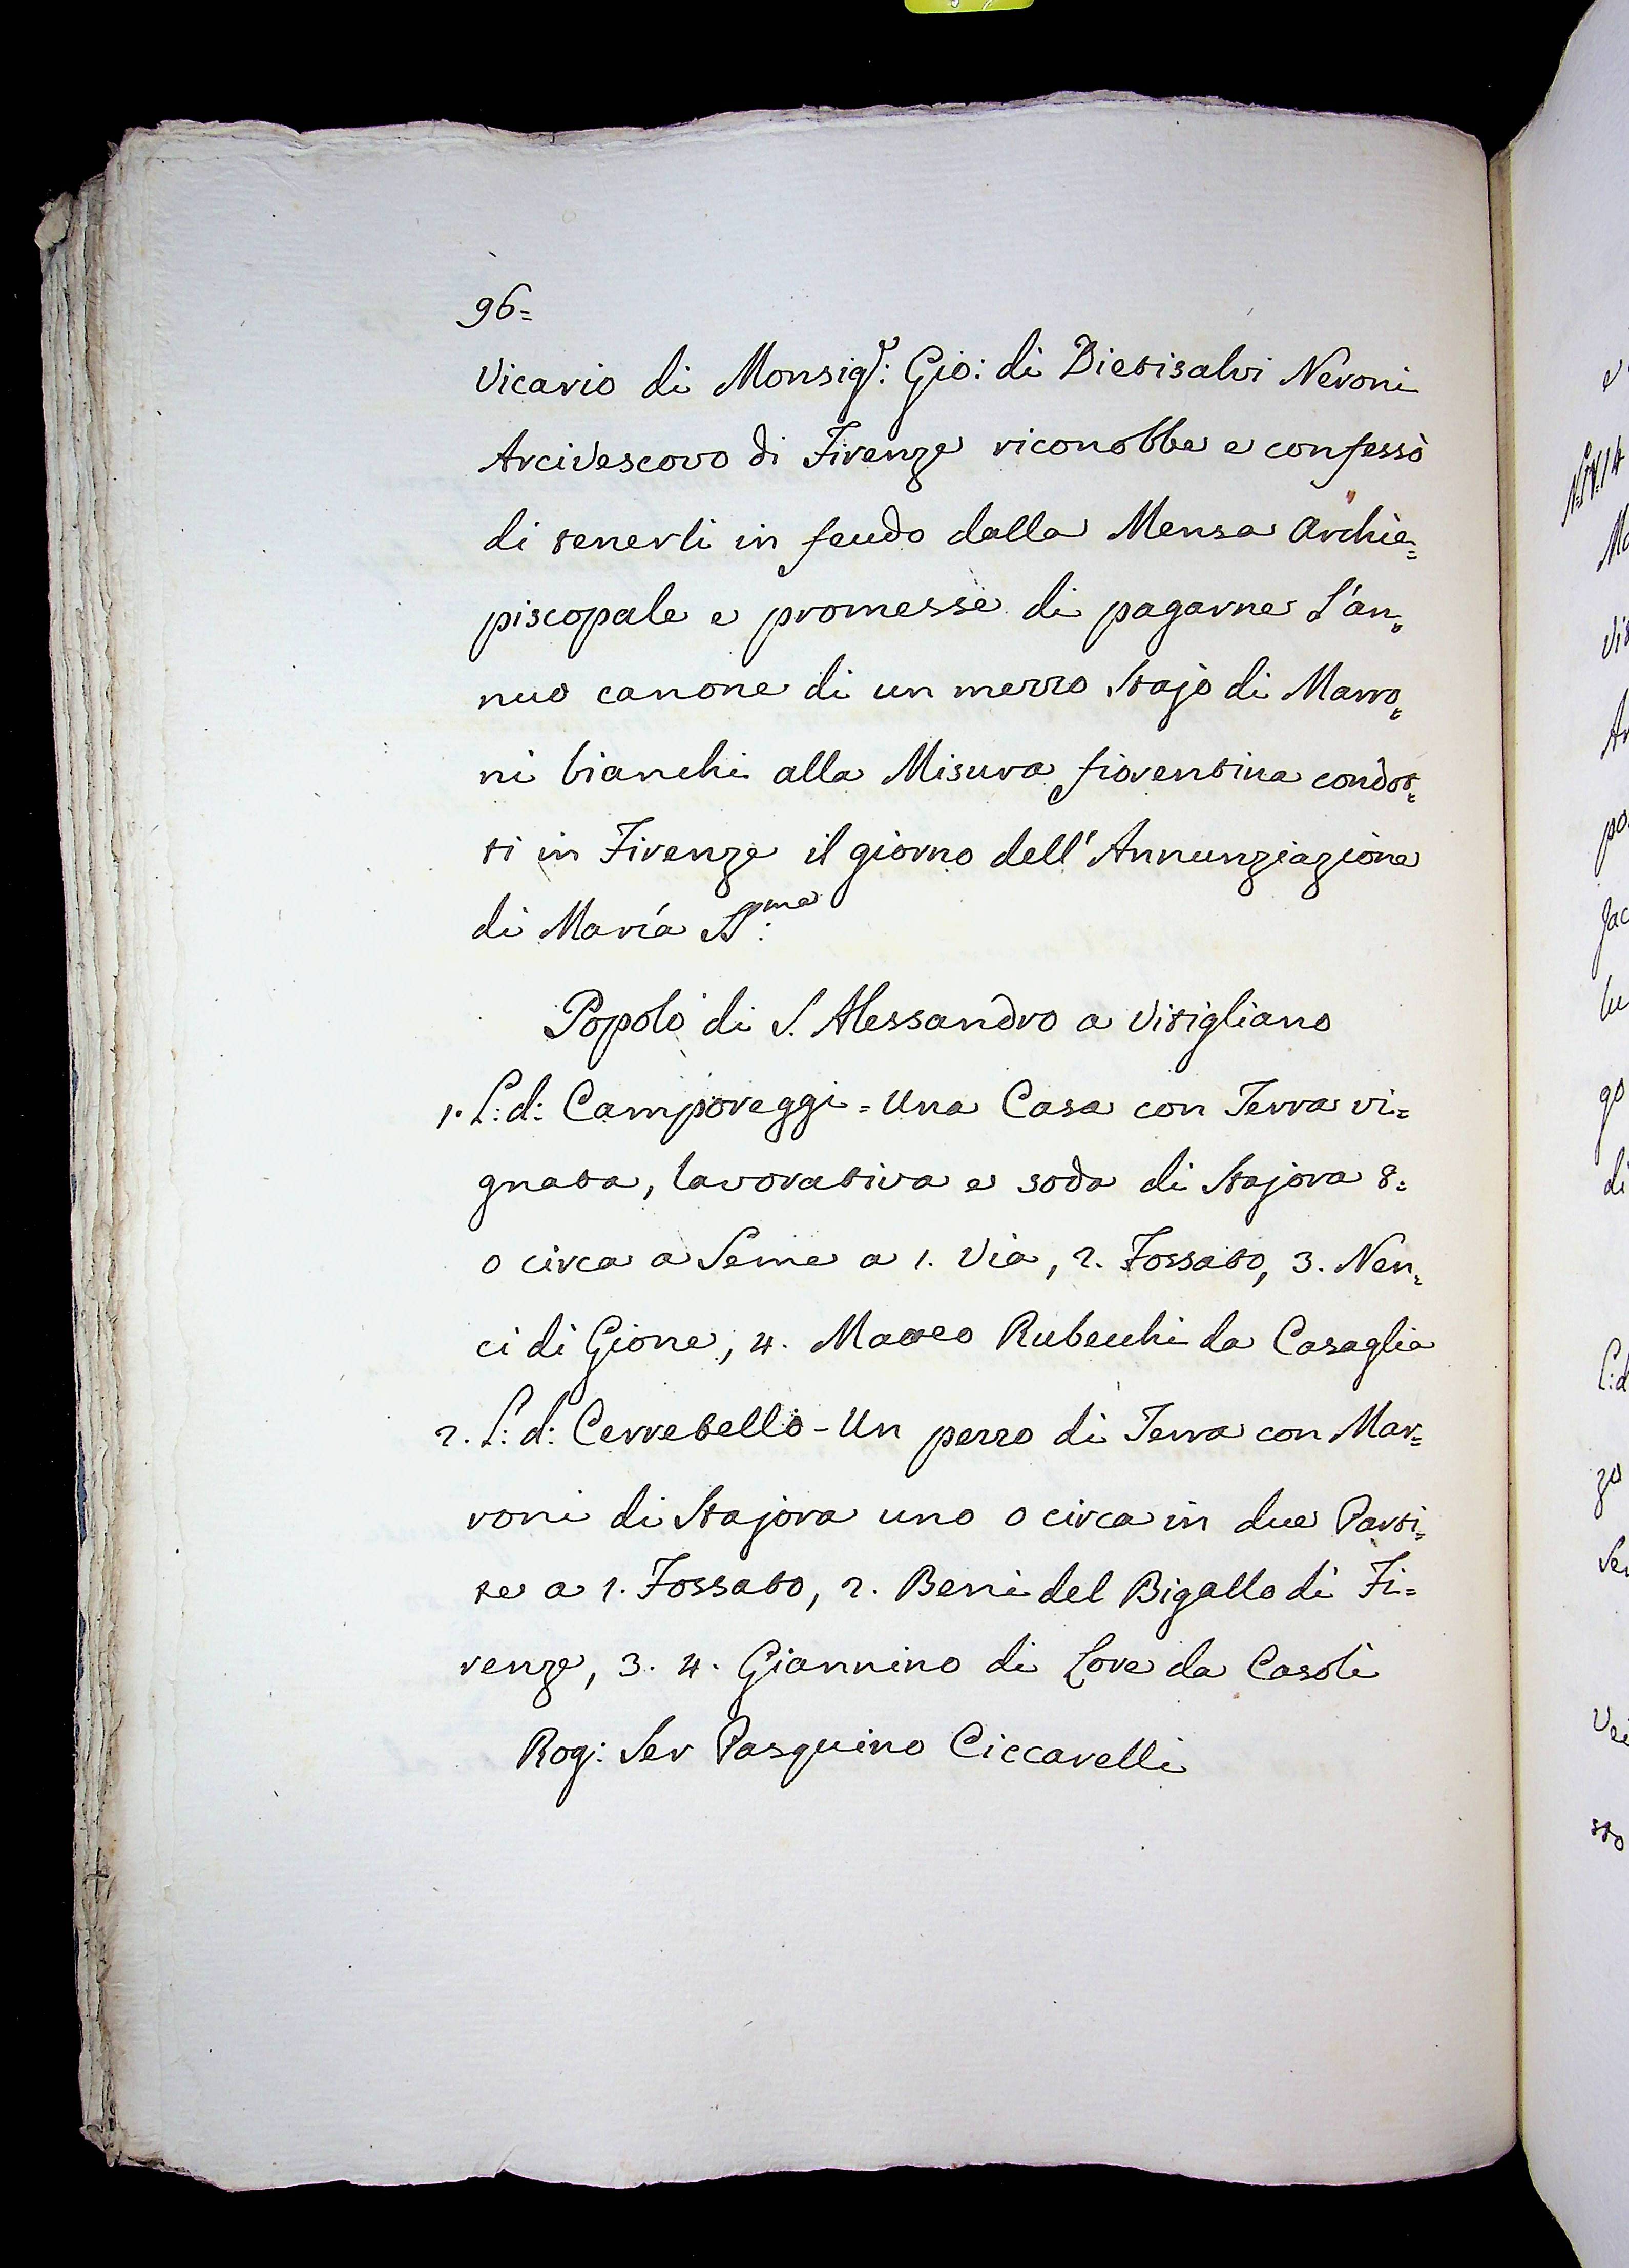 96=
Vicario di Monsig.r: Gio: di Dietisalvi Neroni
Arcivescovo di Firenze riconobbe e confessò
di tenerli in feudo dalla Mensa Archie=
piscopale e promesse di pagarne l'an=
nuo canone di un mezzo Stajo di Marro=
ni bianchi alla Misura fiorentina condot=
ti in Firenze il giorno dell'Annunziazione
di Maria SS:ma
Popolo di S. Alessandro a Vitigliano
1. L: d: Camporeggi = Una Casa con Terra vi=
gnata, lavorativa e soda di Stajora 8=
o circa a Seme a 1. Via, 2. Fossato, 3. Nen=
ci di Gione, 4. Matteo Rubecchi da Casaglia
2. L: d: Cerretello - Un pezzo di Terra con Mar=
roni di Stajora uno o circa in due Parti=
te a 1. Fossato, 2. Beni del Bigallo di Fi=
renze, 3. 4. Giannino di Lore da Casoli
Rog: Ser Pasquino Ciccarelli